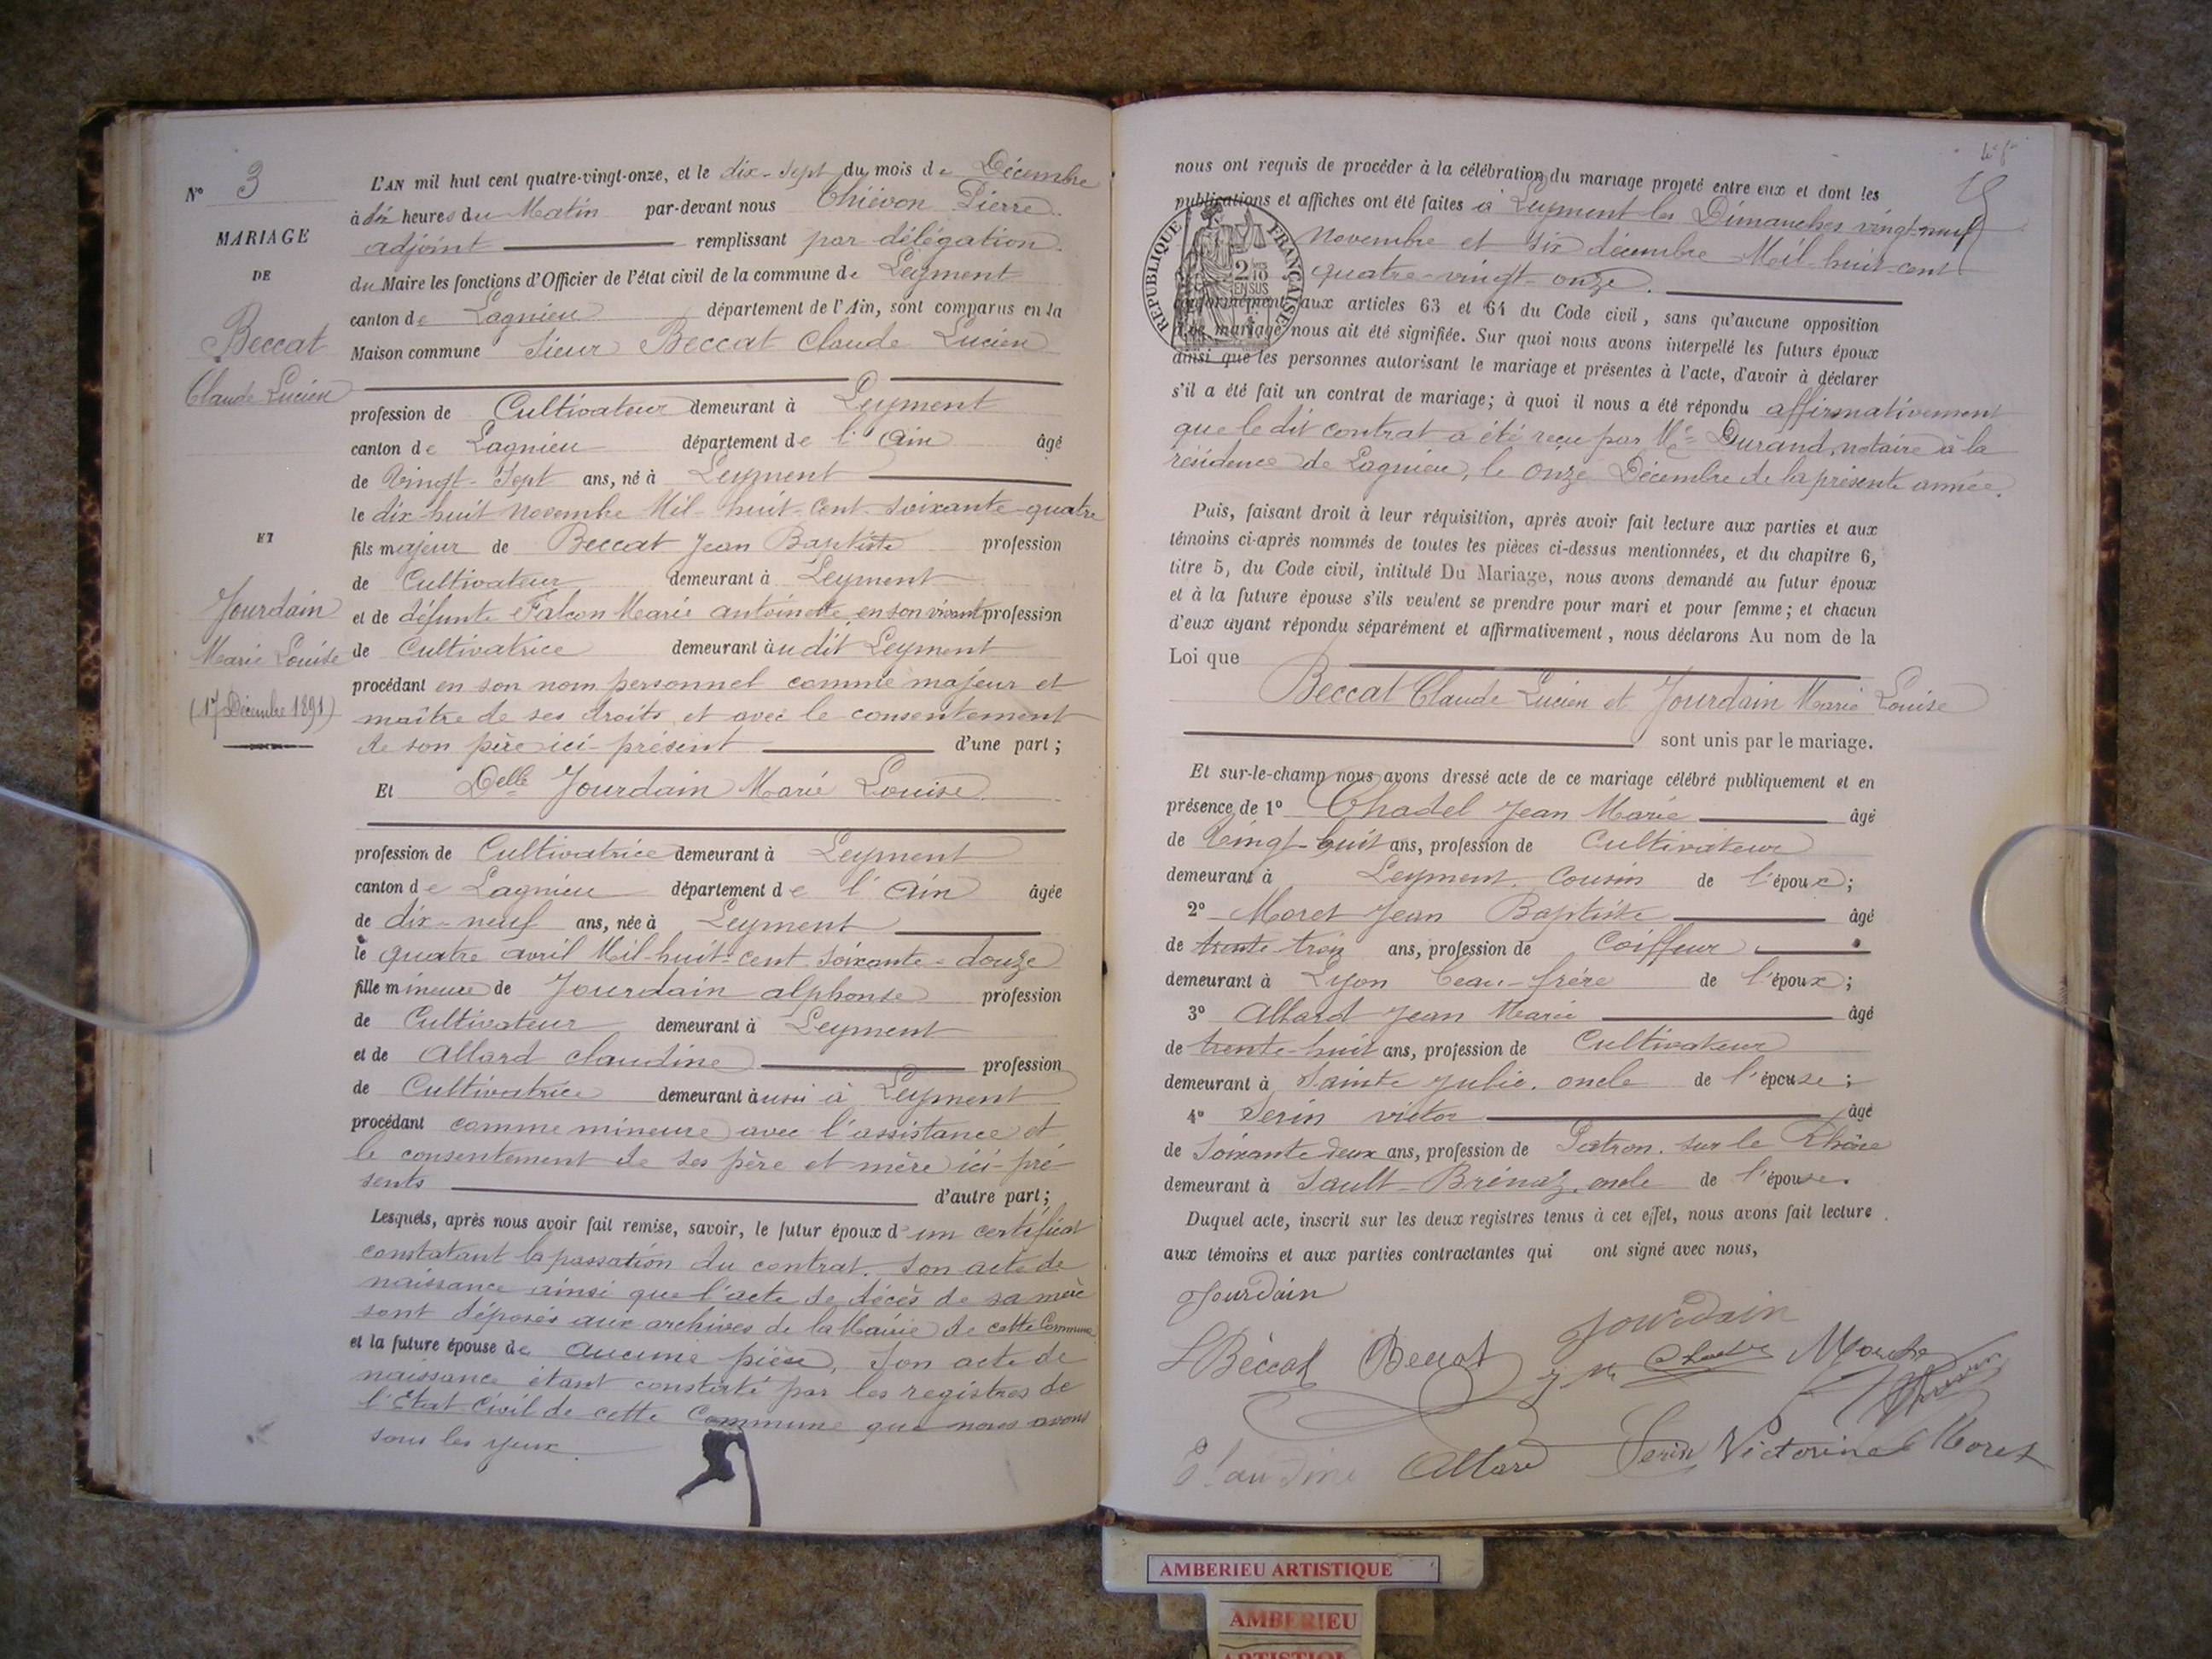 N° 3
MARIAGE
DE
Beccat
Claude Lucien
ET
Jourdain
Marie Louise
(17 Décembre 1891)
L'AN mil huit cent quatre-vingt-onze, et le dix-sept du mois de Décembre
à dix heures du Matin par-devant nous Thiévon Pierre
adjoint remplissant par délégation
du Maire les fonctions d'Officier de l'état civil de la commune de Leyment
canton de Lagnieu département de l'Ain, sont comparus en la
Maison commune Sieur Beccat Claude Lucien
profession de Cultivateur demeurant à Leyment
canton de Lagnieu département de l'Ain âgé
de Vingt-Sept ans, né à Leyment
le dix-huit Novembre Mil-huit-cent-soixante-quatre
fils majeur de Beccat Jean Baptiste profession
de Cultivateur demeurant à Leyment
et de défunte Falcon Marie Antoinette, en son vivant profession
de Cultivatrice demeurant audit Leyment
procédant en son nom personnel comme majeur et
maître de ses droits et avec le consentement
de son père ici-présent d'une part;
Et Delle Jourdain Marie Louise
profession de Cultivatrice demeurant à Leyment
canton de Lagnieu département de l'Ain âgée
de dix-neuf ans, née à Leyment
le quatre avril Mil-huit-cent-soixante-douze
fille mineure de Jourdain alphonse profession
de Cultivateur demeurant à Leyment
et de Allard claudine profession
de Cultivatrice demeurant aussi à Leyment
procédant comme mineure avec l'assistance et
le consentement de ses père et mère ici-pré-
sents d'autre part;
Lesquels, après nous avoir fait remise, savoir, le futur époux d'un certificat
constatant la passation du contrat. Son acte de
naissance ainsi que l'acte de décès de sa mère
sont déposés aux archives de la Mairie de cette Commune
et la future épouse de aucune pièce, Son acte de
naissance étant constaté par les registres de
l'Etat Civil de cette Commune que nous avons
sous les yeux
nous ont requis de procéder à la célébration du mariage projeté entre eux et dont les
publications et affiches ont été faites à Leyment les Dimanches vingt-neuf
Novembre et six décembre Mil-huit-cent
quatre-vingt-onze.
RÉPUBLIQUE FRANÇAISE
conformément aux articles 63 et 64 du Code civil, sans qu'aucune opposition
mariage nous ait été signifiée. Sur quoi nous avons interpellé les futurs époux
ainsi que les personnes autorisant le mariage et présentes à l'acte, d'avoir à déclarer
s'il a été fait un contrat de mariage; à quoi il nous a été répondu affirmativement
que le dit contrat a été reçu par Me Durand, notaire à la
résidence de Lagnieu, le onze Décembre de la présente année.
Puis, faisant droit à leur réquisition, après avoir fait lecture aux parties et aux
témoins ci-après nommés de toutes les pièces ci-dessus mentionnées, et du chapitre 6,
titre 5, du Code civil, intitulé Du Mariage, nous avons demandé au futur époux
et à la future épouse s'ils veulent se prendre pour mari et pour femme; et chacun
d'eux ayant répondu séparément et affirmativement, nous déclarons Au nom de la
Loi que
Beccat Claude Lucien et Jourdain Marie Louise
sont unis par le mariage.
Et sur-le-champ nous avons dressé acte de ce mariage célébré publiquement et en
présence de 1° Chadel Jean Marie âgé
de Vingt-huit ans, profession de Cultivateur
demeurant à Leyment. Cousin de l'époux;
2° Moret Jean Baptiste âgé
de trente trois ans, profession de Coiffeur
demeurant à Lyon beau-frère de l'époux;
3° Allard Jean Marie âgé
de trente-huit ans, profession de Cultivateur
demeurant à Sainte Julie. oncle de l'épouse;
4° Serin victor âgé
de Soixante deux ans, profession de Patron. sur le Rhône
demeurant à Sault-Brénaz. oncle de l'épouse.
Duquel acte, inscrit sur les deux registres tenus à cet effet, nous avons fait lecture
aux témoins et aux parties contractantes qui ont signé avec nous,
Jourdain
Jourdain
L Béccat Beccat
Claudine Allard Serin Victorine Moret
AMBERIEU ARTISTIQUE
AMBERIEU
ARTISTIQUE